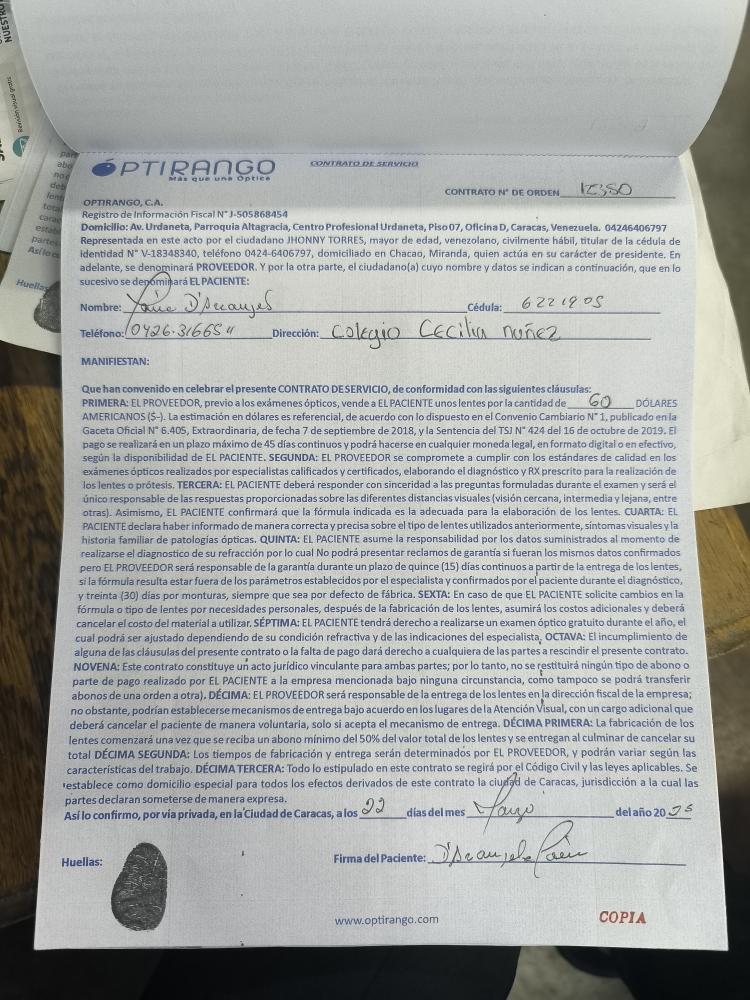 OPTIRANGO
Más que una Óptica
CONTRATO DE SERVICIO
CONTRATO N° DE ORDEN 12350
OPTIRANGO, C.A.
Registro de Información Fiscal N° J-505868454
Domicilio: Av. Urdaneta, Parroquia Altagracia, Centro Profesional Urdaneta, Piso 07, Oficina D, Caracas, Venezuela. 04246406797
Representada en este acto por el ciudadano JHONNY TORRES, mayor de edad, venezolano, civilmente hábil, titular de la cédula de
Identidad N° V-18348340, teléfono 0424-6406797, domiciliado en Chacao, Miranda, quien actúa en su carácter de presidente. En
adelante, se denominará PROVEEDOR. Y por la otra parte, el ciudadano(a) cuyo nombre y datos se indican a continuación, que en lo
sucesivo se denominará EL PACIENTE:
Nombre: D'Arcangelo Cédula: 6221905
Teléfono: Dirección: Colegio Cecilia nuñez
MANIFIESTAN:
Que han convenido en celebrar el presente CONTRATO DE SERVICIO, de conformidad con las siguientes cláusulas:
PRIMERA: EL PROVEEDOR, previo a los exámenes ópticos, vende a EL PACIENTE unos lentes por la cantidad de 60 DÓLARES
AMERICANOS ($-). La estimación en dólares es referencial, de acuerdo con lo dispuesto en el Convenio Cambiario N° 1, publicado en la
Gaceta Oficial N° 6.405, Extraordinaria, de fecha 7 de septiembre de 2018, y la Sentencia del TSJ N° 424 del 16 de octubre de 2019. El
pago se realizará en un plazo máximo de 45 días continuos y podrá hacerse en cualquier moneda legal, en formato digital o en efectivo,
según la disponibilidad de EL PACIENTE. SEGUNDA: EL PROVEEDOR se compromete a cumplir con los estándares de calidad en los
exámenes ópticos realizados por especialistas calificados y certificados, elaborando el diagnóstico y RX prescrito para la realización de
los lentes o prótesis. TERCERA: EL PACIENTE deberá responder con sinceridad a las preguntas formuladas durante el examen y será el
único responsable de las respuestas proporcionadas sobre las diferentes distancias visuales (visión cercana, intermedia y lejana, entre
otras). Asimismo, EL PACIENTE confirmará que la fórmula indicada es la adecuada para la elaboración de los lentes. CUARTA: EL
PACIENTE declara haber informado de manera correcta y precisa sobre el tipo de lentes utilizados anteriormente, síntomas visuales y la
historia familiar de patologías ópticas. QUINTA: EL PACIENTE asume la responsabilidad por los datos suministrados al momento de
realizarse el diagnostico de su refracción por lo cual No podrá presentar reclamos de garantía si fueran los mismos datos confirmados
pero EL PROVEEDOR será responsable de la garantía durante un plazo de quince (15) días continuos a partir de la entrega de los lentes,
si la fórmula resulta estar fuera de los parámetros establecidos por el especialista y confirmados por el paciente durante el diagnóstico,
y treinta (30) días por monturas, siempre que sea por defecto de fábrica. SEXTA: En caso de que EL PACIENTE solicite cambios en la
fórmula o tipo de lentes por necesidades personales, después de la fabricación de los lentes, asumirá los costos adicionales y deberá
cancelar el costo del material a utilizar. SÉPTIMA: EL PACIENTE tendrá derecho a realizarse un examen óptico gratuito durante el año, el
cual podrá ser ajustado dependiendo de su condición refractiva y de las indicaciones del especialista. OCTAVA: El incumplimiento de
alguna de las cláusulas del presente contrato o la falta de pago dará derecho a cualquiera de las partes a rescindir el presente contrato.
NOVENA: Este contrato constituye un acto jurídico vinculante para ambas partes; por lo tanto, no se restituirá ningún tipo de abono o
parte de pago realizado por EL PACIENTE a la empresa mencionada bajo ninguna circunstancia, como tampoco se podrá transferir
abonos de una orden a otra). DÉCIMA: EL PROVEEDOR será responsable de la entrega de los lentes en la dirección fiscal de la empresa;
no obstante, podrían establecerse mecanismos de entrega bajo acuerdo en los lugares de la Atención Visual, con un cargo adicional que
deberá cancelar el paciente de manera voluntaria, solo si acepta el mecanismo de entrega. DÉCIMA PRIMERA: La fabricación de los
lentes comenzará una vez que se reciba un abono mínimo del 50% del valor total de los lentes y se entregan al culminar de cancelar su
total DÉCIMA SEGUNDA: Los tiempos de fabricación y entrega serán determinados por EL PROVEEDOR, y podrán variar según las
características del trabajo. DÉCIMA TERCERA: Todo lo estipulado en este contrato se regirá por el Código Civil y las leyes aplicables. Se
establece como domicilio especial para todos los efectos derivados de este contrato la ciudad de Caracas, jurisdicción a la cual las
partes declaran someterse de manera expresa.
Así lo confirmo, por vía privada, en la Ciudad de Caracas, a los 22 días del mes Mayo del año 2025
Huellas:
Firma del Paciente:
www.optirango.com
COPIA